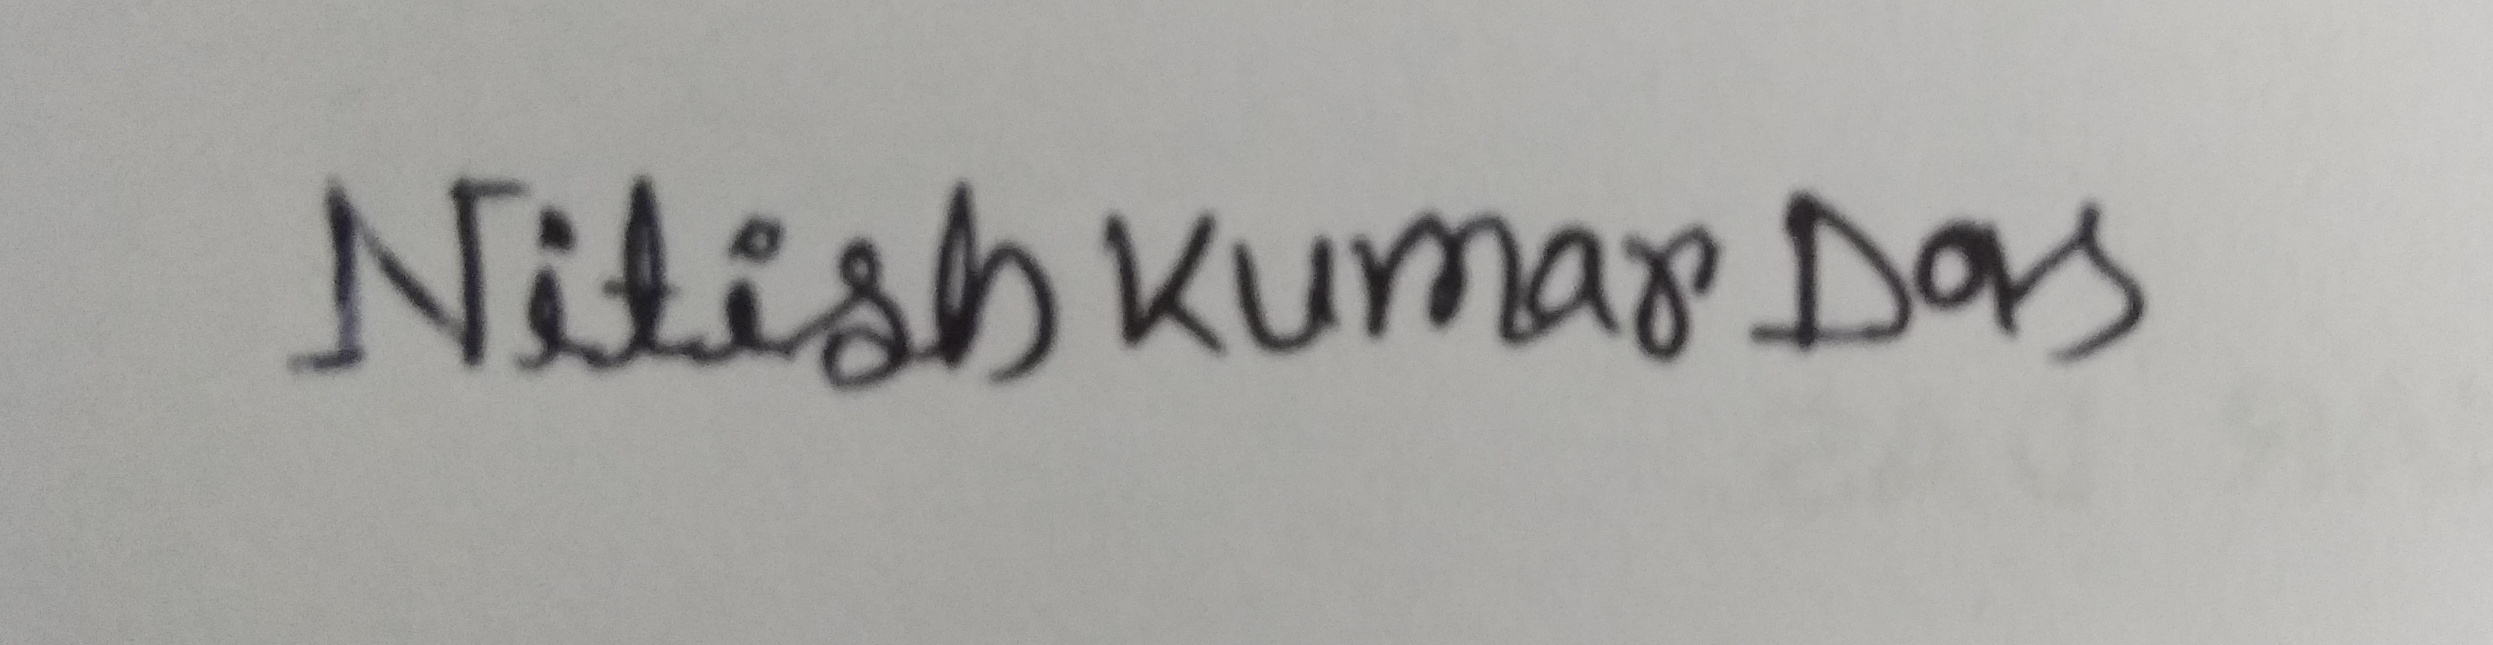 Nitish Kumar Das